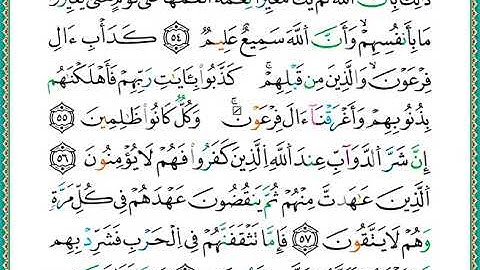 ذَٰلِكَ بِأَنَّ ٱللَّهَ لَمْ يَكُ مُغَيِّرًا نِّعْمَةً أَنْعَمَهَا عَلَىٰ قَوْمٍ حَتَّىٰ
مَا بِأَنفُسِهِمْ وَأَنَّ ٱللَّهَ سَمِيعٌ عَلِيمٌ ٥٤ كَدَأْبِ ءَالِ
فِرْعَوْنَ وَٱلَّذِينَ مِن قَبْلِهِمْ ۚ كَذَّبُوا۟ بِـَٔايَـٰتِ رَبِّهِمْ فَأَهْلَكْنَـٰهُم
بِذُنُوبِهِمْ وَأَغْرَقْنَآ ءَالَ فِرْعَوْنَ ۚ وَكُلٌّ كَانُوا۟ ظَـٰلِمِينَ ٥٥
إِنَّ شَرَّ ٱلدَّوَآبِّ عِندَ ٱللَّهِ ٱلَّذِينَ كَفَرُوا۟ فَهُمْ لَا يُؤْمِنُونَ ٥٦
ٱلَّذِينَ عَـٰهَدتَّ مِنْهُمْ ثُمَّ يَنقُضُونَ عَهْدَهُمْ فِى كُلِّ مَرَّةٍ
وَهُمْ لَا يَتَّقُونَ ٥٧ فَإِمَّا تَثْقَفَنَّهُمْ فِى ٱلْحَرْبِ فَشَرِّدْ بِهِم